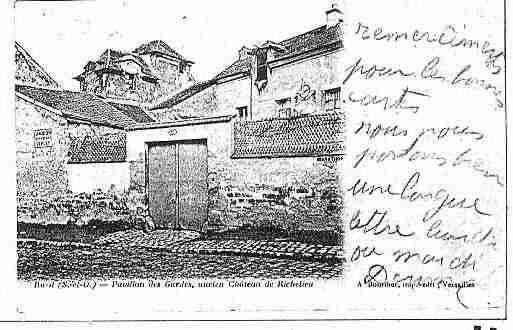 remerciments
pour les bonnes
carts
nous nous
portons bien
une longue
lettre lundi
ou mardi
Rueil (S.-et-O.) — Pavillon des Gardes, ancien Château de Richelieu
A Bourdier, imp.-édit., Versailles